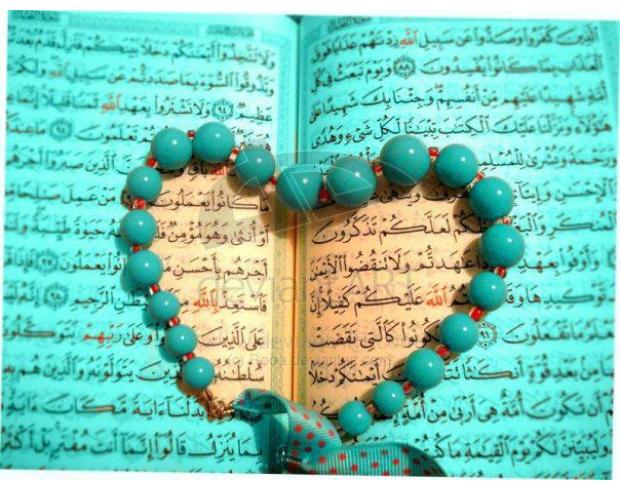 الذين كفروا وصدوا عن سبيل الله زدنهم عذابا فوق
العذاب بما كانوا يفسدون ٨٨ ويوم نبعث في كل
أمة شهيدا عليهم من أنفسهم وجئنا بك شهيدا على
هؤلاء ونزلنا عليك الكتب تبينا لكل شيء وهدى
ورحمة وبشرى للمسلمين
والإحسن وينهى
لعلكم تذكرون
وأوفوا بعهد عهدتم ولا تنقضوا الأيمن
توكيدها وقد الله عليكم كفيلا إن
ما تفعلون ٩١ تكونوا كالتي نقضت
من بعد قوة أنكثا أيمنكم دخلا
أن تكون أمة هي أربى من أمة
وليبينن لكم يوم القيمة ما كنتم
ولا تتخذوا أيمنكم دخلا بينكم فتزل قدم بعد
وتذوقوا السوء بما صددتم عن سبيل الله ولكم
عظيم ٩٤ ولا تشتروا بعهد الله ثمنا قليلا إنما
تعلمون ٩٥ ما عندكم
الله باق الذين صبروا أجرهم
ما كانوا يعملون من عمل صلحا
أو أنثى وهو مؤمن حيوة طيبة
أجرهم بأحسن يعملون ٩٧ فإذا
فاستعذ بالله الشيطن الرجيم ٩٨ إنه
على الذين وعلى ربهم يتوكلون
سلطنه الذين يتولونه والذين هم به
بدلنا ءاية مكان ءاية
بما ينزل قالوا إنما أنت مفتر بل أكثر
deviantART